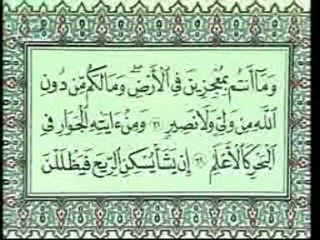 وَمَآ أَنتُم بِمُعْجِزِينَ فِي ٱلْأَرْضِ ۖ وَمَا لَكُم مِّن دُونِ
ٱللَّهِ مِن وَلِيٍّ وَلَا نَصِيرٍ ٣١ وَمِنْ ءَايَٰتِهِ ٱلْجَوَارِ فِي
ٱلْبَحْرِ كَٱلْأَعْلَٰمِ ٣٢ إِن يَشَأْ يُسْكِنِ ٱلرِّيحَ فَيَظْلَلْنَ